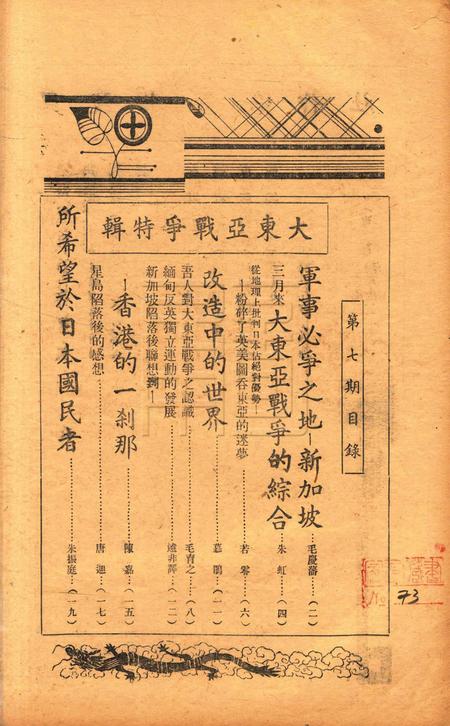 大東亞戰爭特輯
第七期目錄
軍事必爭之地—新加坡……毛慶藩…（二）
三月來大東亞戰爭的綜合……朱虹…（四）
從地理上批判日本佔絕對優勢—
—粉碎了英美圖吞東亞的迷夢……若零…（六）
改造中的世界……慕鵑…（一一）
吾人對大東亞戰爭之認識……毛育之…（八）
緬甸反英獨立運動的發展……遠非譯…（一二）
新加坡陷落後聯想到—
—香港的一刹那……陳嘉…（一五）
星島陷落後的感想……唐迦…（一七）
所希望於日本國民者……朱振庭…（一九）
73